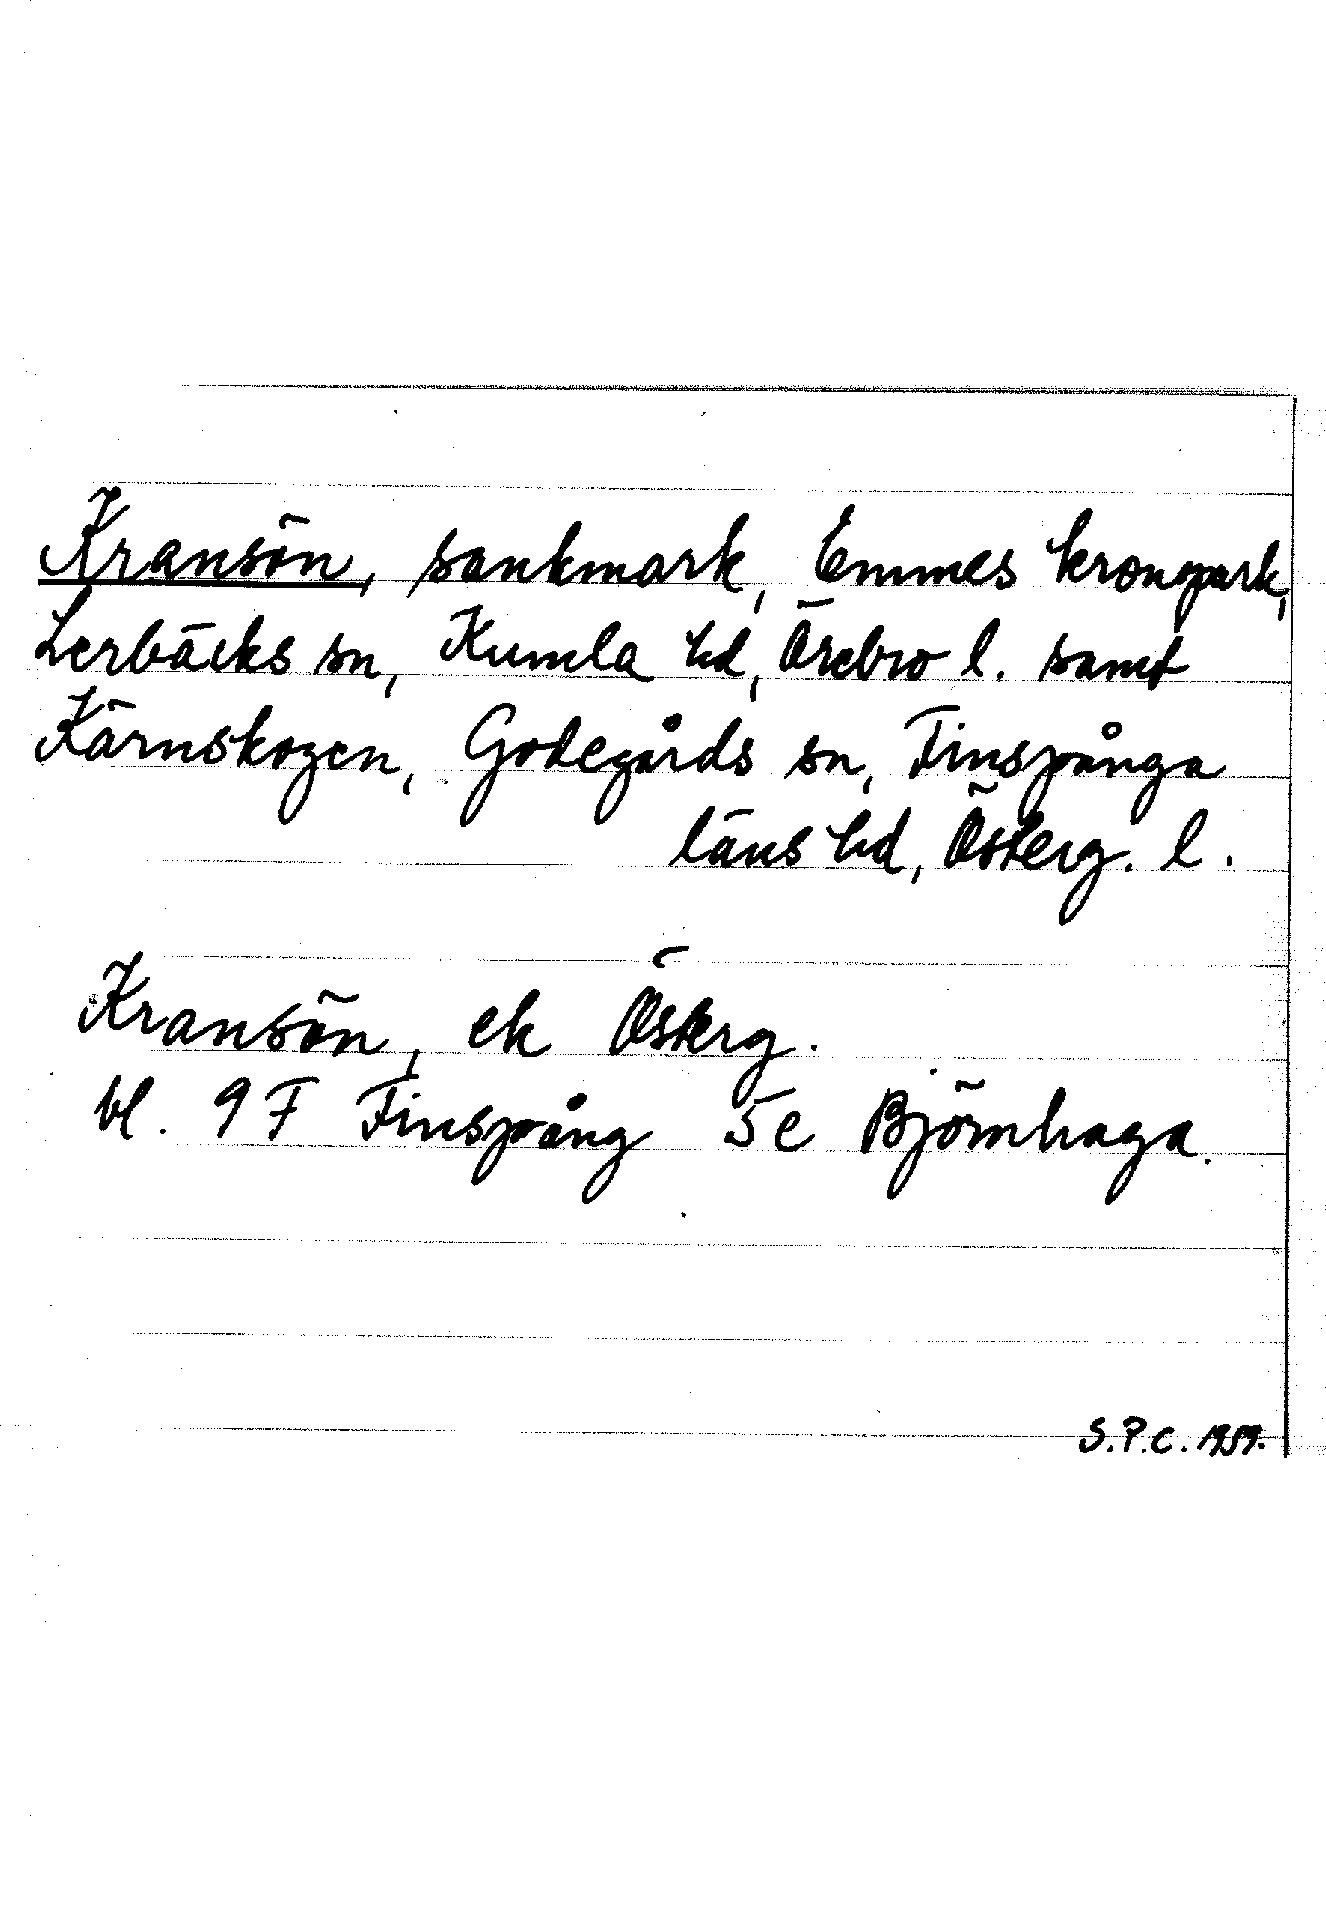 Kransön, sankmark, Emmes kronopark,
Lerbäcks sn, Kumla hd, Örebro l. samt
Kärnskogen, Godegårds sn, Finspånga
läns hd, Österg. l.
Kransön, ek Österg.
bl. 9 F Finspång 5e Björnhaga.
S.P.C. 1959.